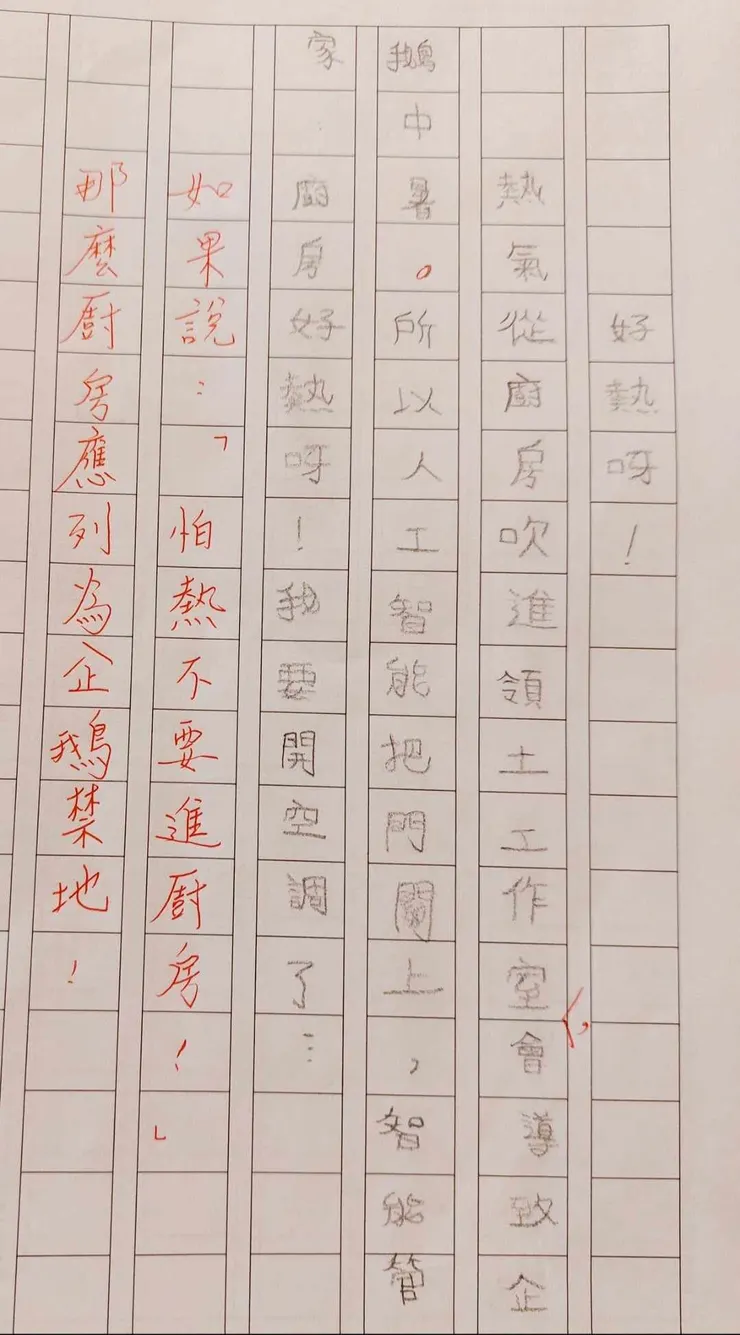 好熱呀！
熱氣從廚房吹進領土工作室，會導致企
鵝中暑。所以人工智能把門關上，智能管
家 廚房好熱呀！我要開空調了…
如果說：「怕熱不要進廚房！」
那麼廚房應列為企鵝禁地！